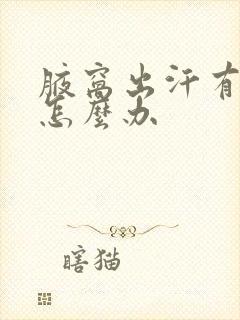 腋窝出汗有
怎麼办
瞎猫